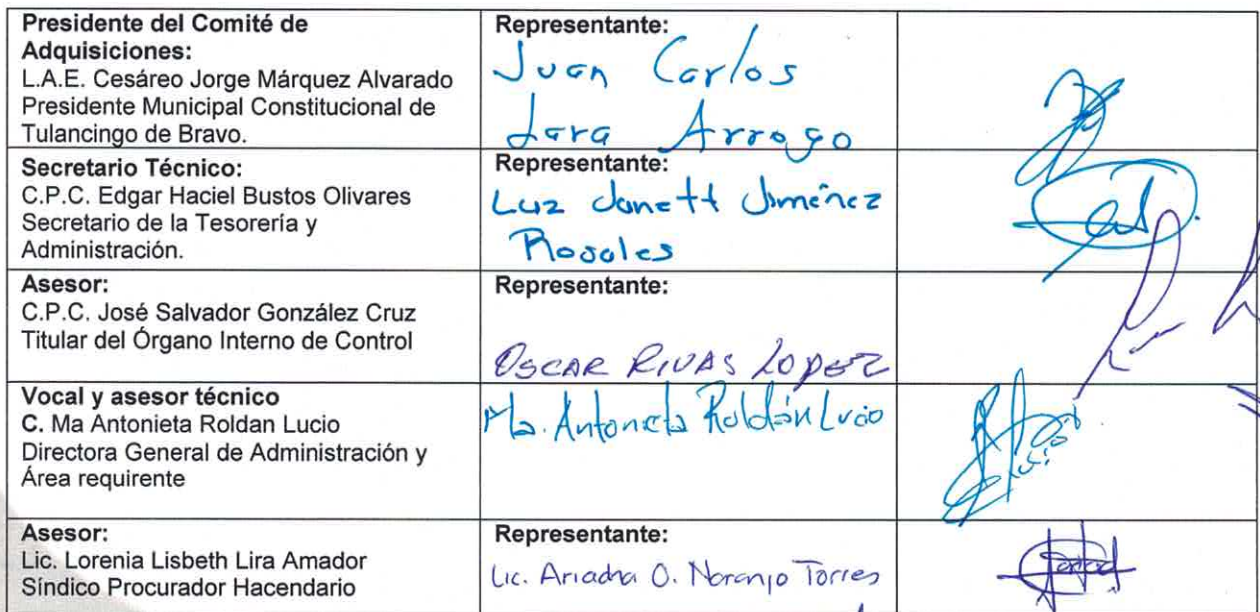 Presidente del Comité de
Adquisiciones:
L.A.E. Cesáreo Jorge Márquez Alvarado
Presidente Municipal Constitucional de
Tulancingo de Bravo.
Representante:
Juan Carlos
Lara Arroyo
Secretario Técnico:
C.P.C. Edgar Haciel Bustos Olivares
Secretario de la Tesorería y
Administración.
Representante:
Luz Janett Jiménez
Rosales
Asesor:
C.P.C. José Salvador González Cruz
Titular del Órgano Interno de Control
Representante:
OSCAR RIVAS LOPEZ
Vocal y asesor técnico
C. Ma Antonieta Roldan Lucio
Directora General de Administración y
Área requirente
Ma. Antonieta Roldán Lucio
Asesor:
Lic. Lorenia Lisbeth Lira Amador
Síndico Procurador Hacendario
Representante:
Lic. Ariadna O. Naranjo Torres